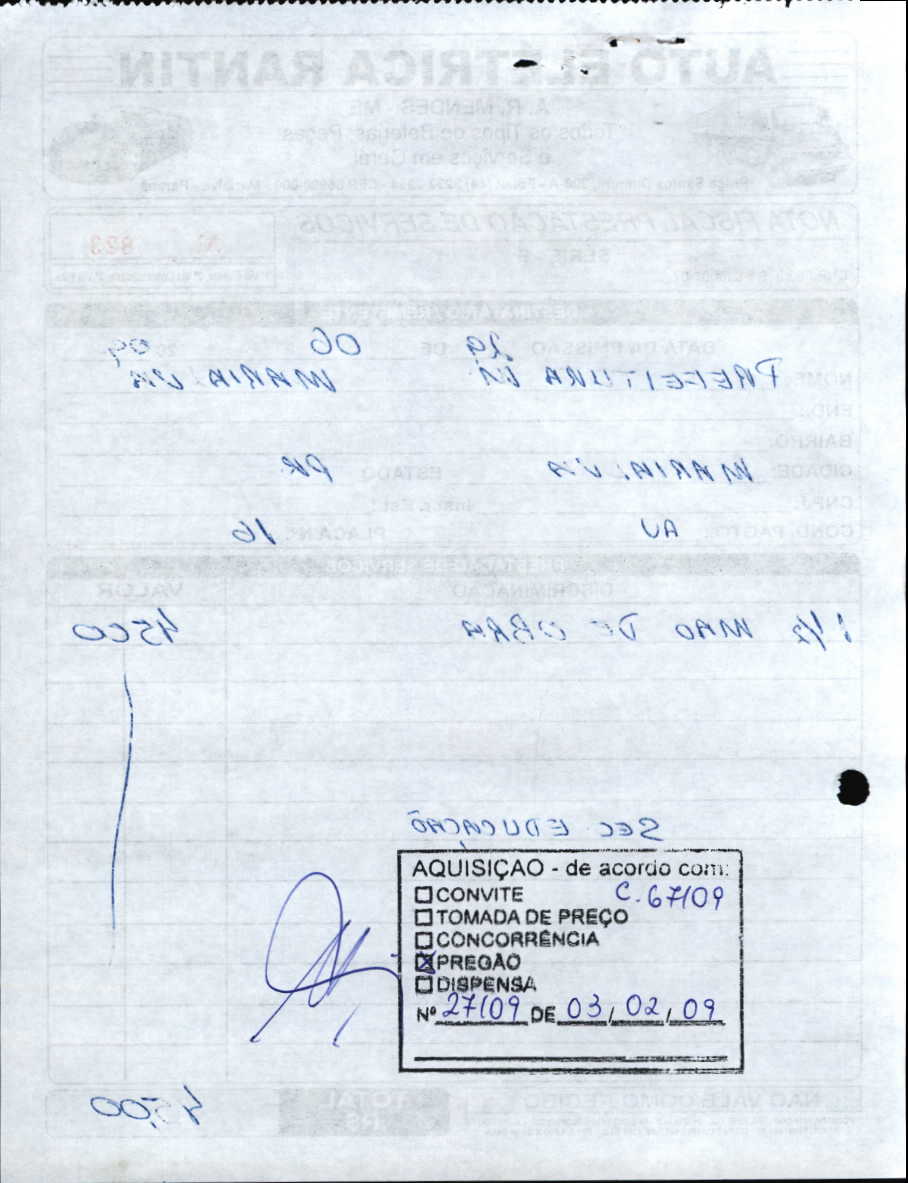 AUTO ELÉTRICA RANTIN
A. R. MENDES - ME
Todos os Tipos de Baterias, Peças
e Serviços em Geral
NOTA FISCAL PRESTAÇÃO DE SERVIÇOS
Nº 823
SÉRIE - F
DATA DA EMISSÃO 29 DE 06 09
NOME: PREFEITURA M MARIALVA
END.:
BAIRRO:
CIDADE: MARIALVA ESTADO PR
CNPJ.: Insc. Est.:
COND. PAGTO.: AV PLACA Nº 16
PRESTAÇÃO DE SERVIÇOS
DISCRIMINAÇÃO VALOR
1 1/2 MAO DE OBRA 4500
SEC EDUCAÇÃO
AQUISIÇAO - de acordo com:
CONVITE C.67/09
TOMADA DE PREÇO
CONCORRÊNCIA
PREGÃO
DISPENSA
Nº 27/09 DE 03/02/09
NÃO VALE COMO RECIBO TOTAL R$ 45,00